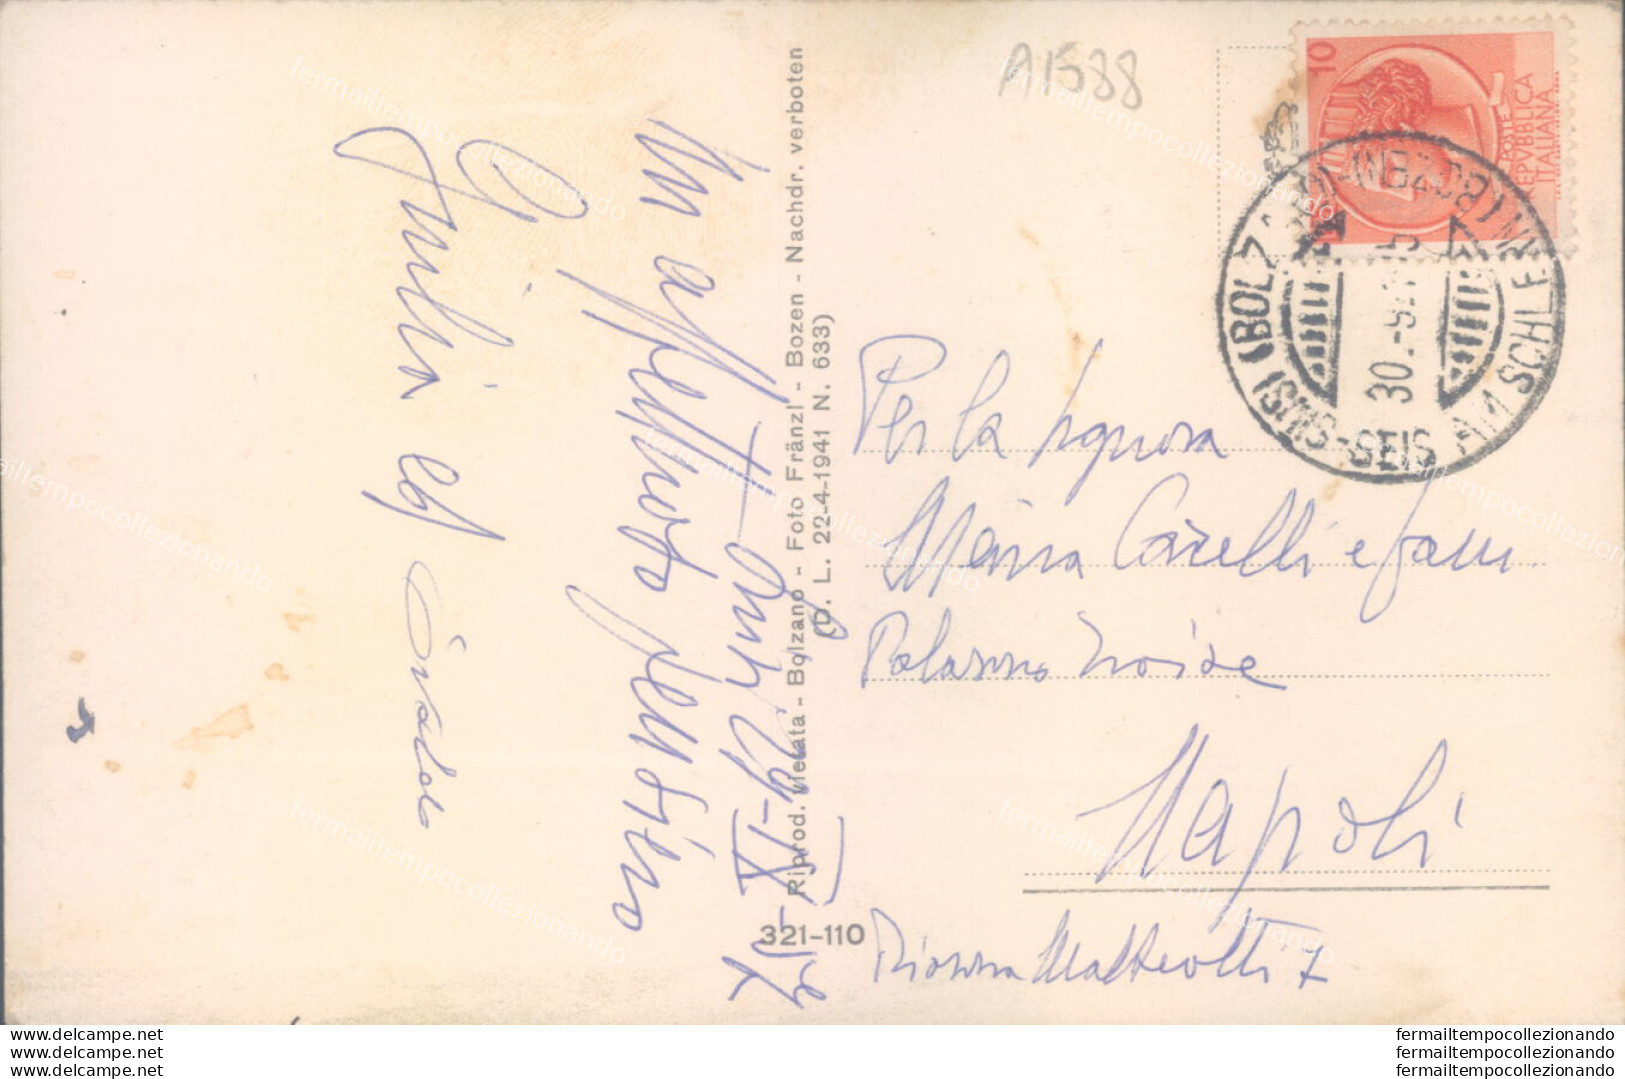 A1588
10
POSTE
REPVBBLICA
ITALIANA
SIUSI (BOLZ
SEIS AM SCHLERN (BOZEN)
30.-9.
Un affettuoso pensiero
Giulia ed
Riprod. vietata - Bolzano - Foto Fränzl - Bozen - Nachdr. verboten
(D. L. 22-4-1941 N. 633)
321-110
29-IX-
Per la Signora
Maria Carelli e fam.
Palazzo
Napoli
Piazza Matteotti 7
fermailtempocollezionando
www.delcampe.net fermailtempocollezionando
www.delcampe.net fermailtempocollezionando
www.delcampe.net fermailtempocollezionando